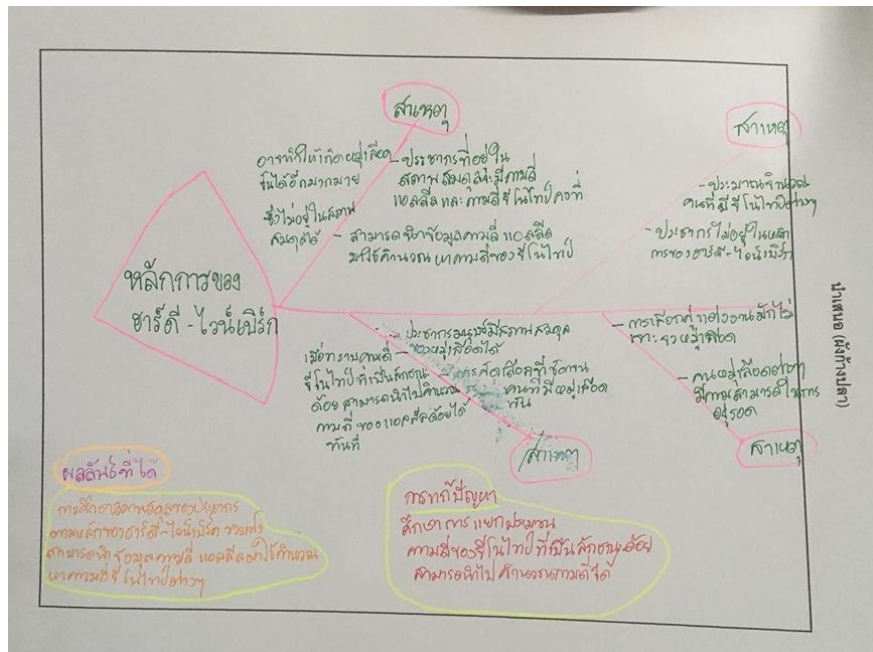 สาเหตุ
อาจทำให้เกิดหมู่เลือด
อื่นได้อีกมากมาย
ซึ่งไม่อยู่ในสภาพ
สมดุลได้
- ประชากรที่อยู่ใน
สภาพสมดุลจะมีความถี่
แอลลีลและความถี่จีโนไทป์คงที่
- สามารถนำข้อมูลความถี่แอลลีล
มาใช้คำนวณหาความถี่ของจีโนไทป์
สาเหตุ
- ประมาณจำนวน
คนที่มีจีโนไทป์ต่างๆ
- ประชากรไม่อยู่ในหลัก
การของฮาร์ดี-ไวน์เบิร์ก
หลักการของ
ฮาร์ดี-ไวน์เบิร์ก
- ประชากรมนุษย์มีสภาพสมดุล
ของหมู่เลือดได้
เมื่อทราบความถี่
จีโนไทป์ที่เป็นลักษณะ
ด้อยสามารถนำไปคำนวณ
ความถี่ของแอลลีลด้อยได้
ทันที
คนที่มีหมู่เลือด
สาเหตุ
- การเลือกคู่แต่งงานมักไม่
เจาะจงหมู่เลือด
- คนหมู่เลือดต่างๆ
มีความสามารถในการ
อยู่รอด
สาเหตุ
นำเสนอ (ผังก้างปลา)
ผลลัพธ์ที่ได้
การศึกษาสมดุลของประชากร
ตามหลักของฮาร์ดี-ไวน์เบิร์ก รวมทั้ง
สามารถนำข้อมูลความถี่แอลลีลมาใช้คำนวณ
หาความถี่จีโนไทป์ต่างๆ
การแก้ปัญหา
ศึกษาการแยกประมาณ
ความถี่ของจีโนไทป์ที่เป็นลักษณะด้อย
สามารถนำไปคำนวณความถี่ได้